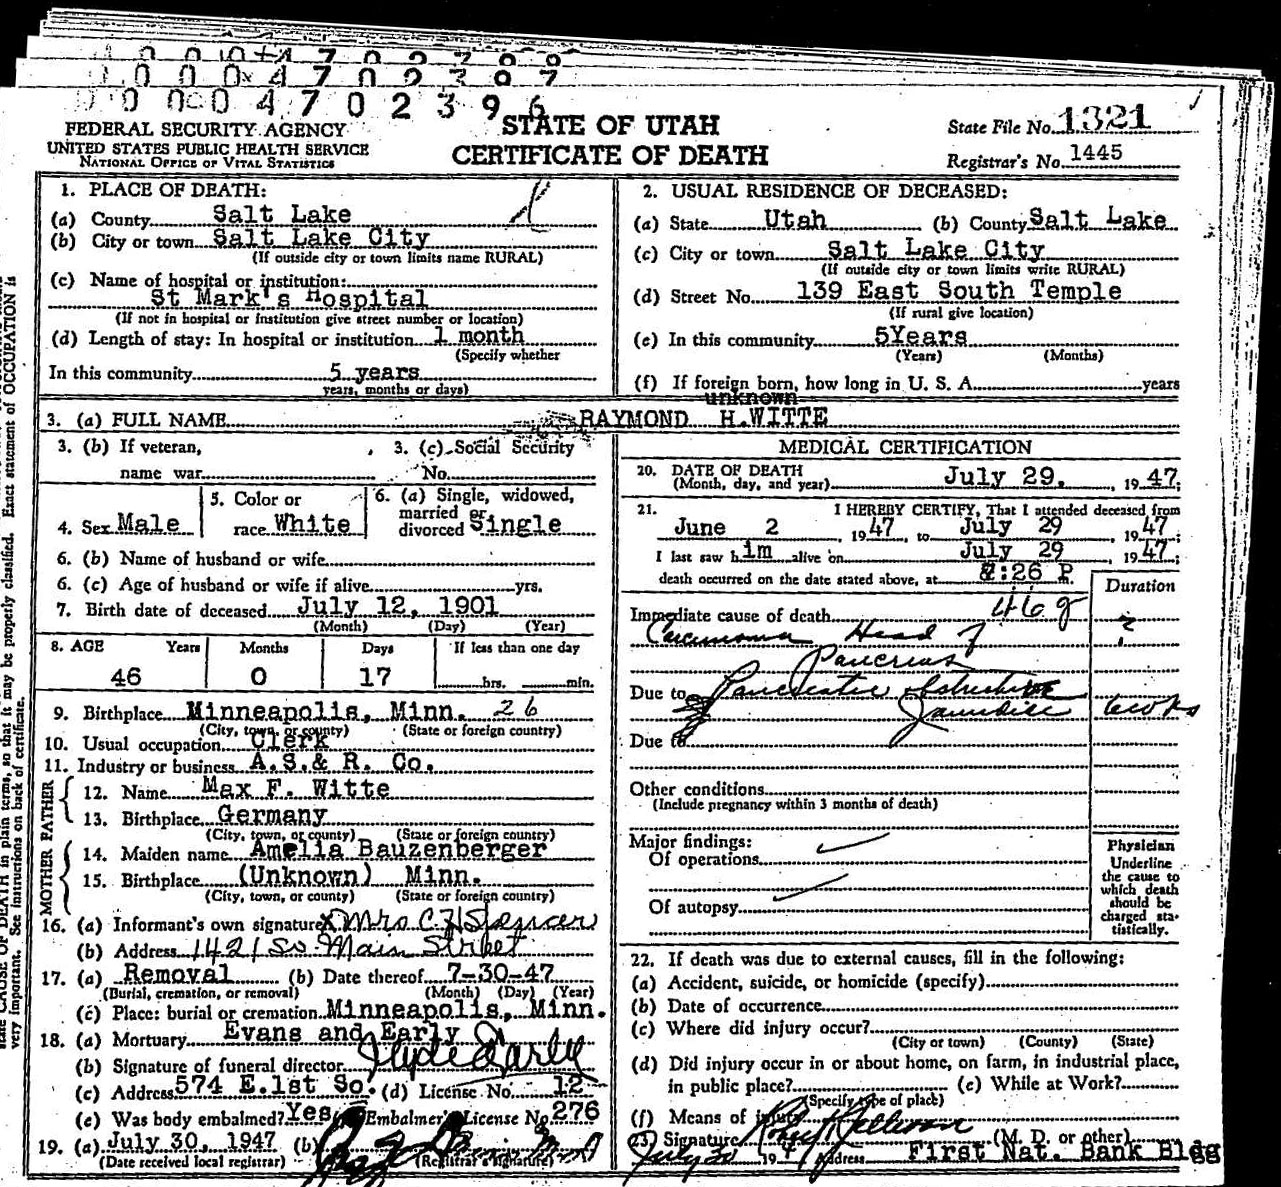 0 0 0 0 4 7 0 2 3 9 7
0 0 0 0 4 7 0 2 3 9 6
FEDERAL SECURITY AGENCY
UNITED STATES PUBLIC HEALTH SERVICE
NATIONAL OFFICE OF VITAL STATISTICS
STATE OF UTAH
CERTIFICATE OF DEATH
State File No. 1321
Registrar's No. 1445
1. PLACE OF DEATH:
(a) County Salt Lake
(b) City or town Salt Lake City
(If outside city or town limits name RURAL)
(c) Name of hospital or institution:
St Mark's Hospital
(If not in hospital or institution give street number or location)
(d) Length of stay: In hospital or institution 1 month
(Specify whether
In this community 5 years
years, months or days)
2. USUAL RESIDENCE OF DECEASED:
(a) State Utah (b) County Salt Lake
(c) City or town Salt Lake City
(If outside city or town limits write RURAL)
(d) Street No. 139 East South Temple
(If rural give location)
(e) In this community 5Years
(Years) (Months)
(f) If foreign born, how long in U. S. A. years
unknown
3. (a) FULL NAME RAYMOND H.WITTE
3. (b) If veteran, name war
3. (c) Social Security No.
4. Sex Male
5. Color or race White
6. (a) Single, widowed, married or divorced Single
6. (b) Name of husband or wife
6. (c) Age of husband or wife if alive yrs.
7. Birth date of deceased July 12, 1901
(Month) (Day) (Year)
8. AGE Years Months Days If less than one day
46 0 17 hrs. min.
9. Birthplace Minneapolis, Minn. 26
(City, town, or county) (State or foreign country)
10. Usual occupation Clerk
11. Industry or business A.S.& R. Co.
FATHER
12. Name Max F. Witte
13. Birthplace Germany
(City, town, or county) (State or foreign country)
MOTHER
14. Maiden name Amelia Bauzenberger
15. Birthplace (Unknown) Minn.
(City, town, or county) (State or foreign country)
16. (a) Informant's own signature X Mrs C. H Spencer
(b) Address 1421 So Main Street
17. (a) Removal (b) Date thereof 7-30-47
(Burial, cremation, or removal) (Month) (Day) (Year)
(c) Place: burial or cremation Minneapolis, Minn.
18. (a) Mortuary Evans and Early
(b) Signature of funeral director Clyde Early
(c) Address 574 E.1st So. (d) License No. 12
(e) Was body embalmed? Yes Embalmer's License No. 276
19. (a) July 30, 1947 (b)
(Date received local registrar) (Registrar's signature)
MEDICAL CERTIFICATION
20. DATE OF DEATH
(Month, day, and year) July 29. , 1947;
21. I HEREBY CERTIFY, That I attended deceased from
June 2 , 1947, to July 29 , 1947;
I last saw him alive on July 29 , 1947;
death occurred on the date stated above, at :26 P.
Duration
Immediate cause of death 46g
Carcinoma Head of ?
Pancreas
Due to Pancreatic
Jaundice 6 wks
Due to
Other conditions
(Include pregnancy within 3 months of death)
Major findings:
Of operations
Of autopsy
Physician
Underline
the cause to
which death
should be
charged sta-
tistically.
22. If death was due to external causes, fill in the following:
(a) Accident, suicide, or homicide (specify)
(b) Date of occurrence
(c) Where did injury occur?
(City or town) (County) (State)
(d) Did injury occur in or about home, on farm, in industrial place,
in public place? (e) While at Work?
(Specify type of place)
(f) Means of injury
23. Signature (M. D. or other)
July 30 194 Address First Nat. Bank Bldg
CAUSE OF DEATH in plain terms, so that it may be properly classified. Exact statement of OCCUPATION is
very important. See instructions on back of certificate.